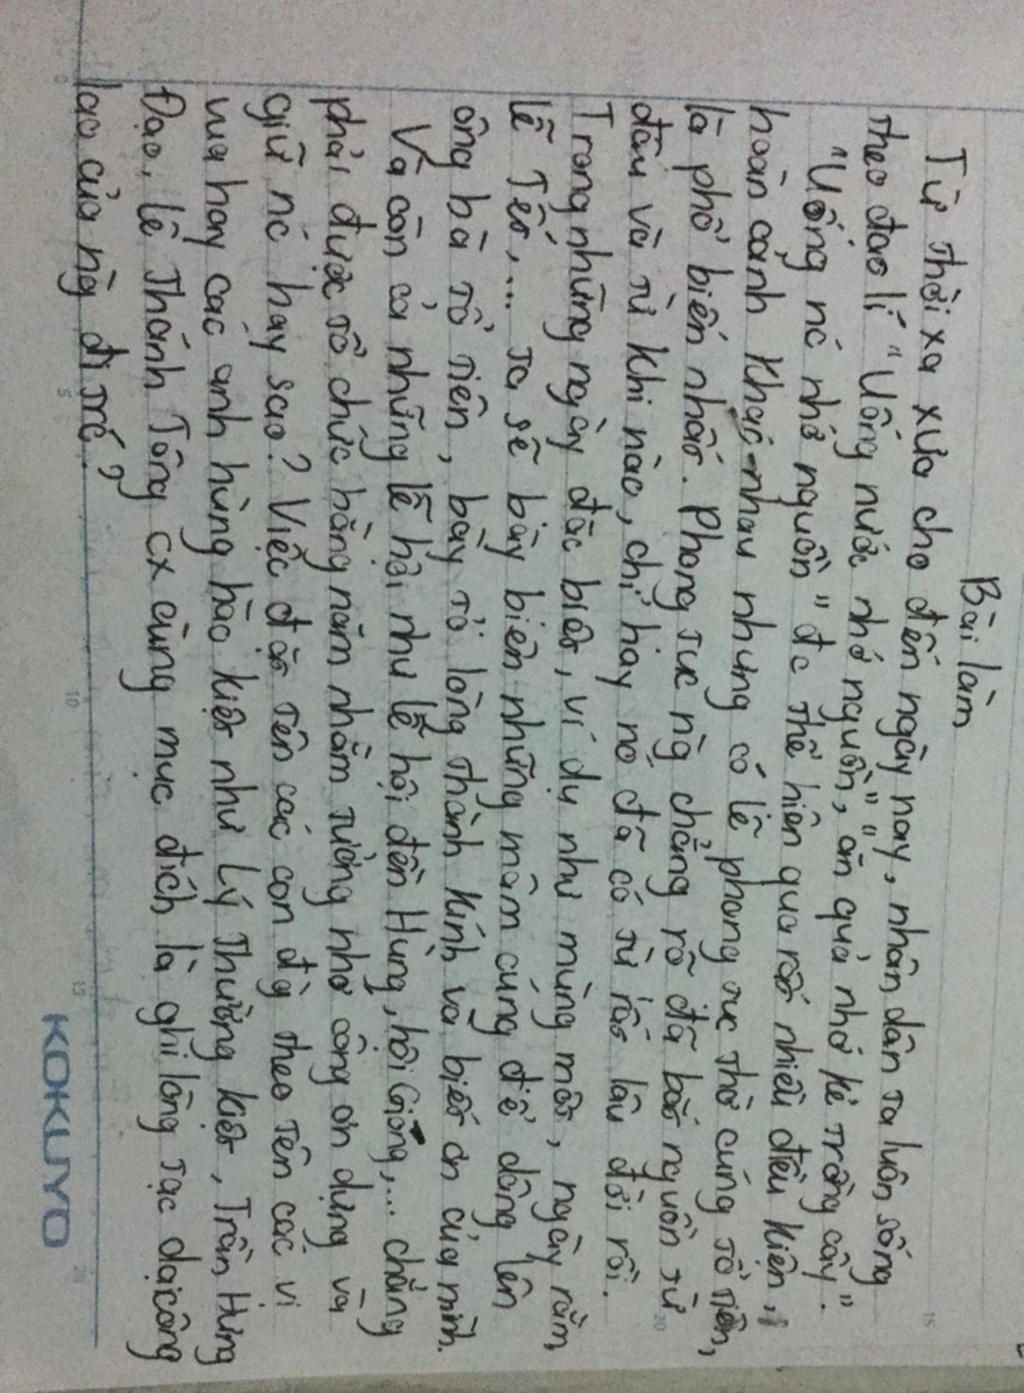 Bài làm
Từ thời xa xưa cho đến ngày nay, nhân dân ta luôn sống
theo đạo lí "Uống nước nhớ nguồn", "ăn quả nhớ kẻ trồng cây".
"Uống nc nhớ nguồn" đc thể hiện qua rất nhiều điều kiện,
hoàn cảnh khác nhau nhưng có lẽ phong tục thờ cúng tổ tiên,
là phổ biến nhất. Phong tục ng chẳng rõ đã bắt nguồn từ
đâu và từ khi nào, chỉ hay nó đã có từ rất lâu đời rồi.
Trong những ngày đặc biệt, ví dụ như mùng một, ngày rằm,
lễ Tết,... ta sẽ bày biện những mâm cúng để dâng lên
ông bà tổ tiên, bày tỏ lòng thành kính và biết ơn của mình.
Và còn cả những lễ hội như lễ hội đền Hùng, hội Gióng,... chẳng
phải được tổ chức hằng năm nhằm tưởng nhớ công ơn dựng và
giữ nc hay sao? Việc đặt tên các con đg theo tên các vị
vua hay các anh hùng hào kiệt như Lý Thường Kiệt, Trần Hưng
Đạo, Lê Thánh Tông cx cùng mục đích là ghi lòng tạc dạ công
lao của ng đi trc?
KOKUYO
0
5
10
15
20
15
20